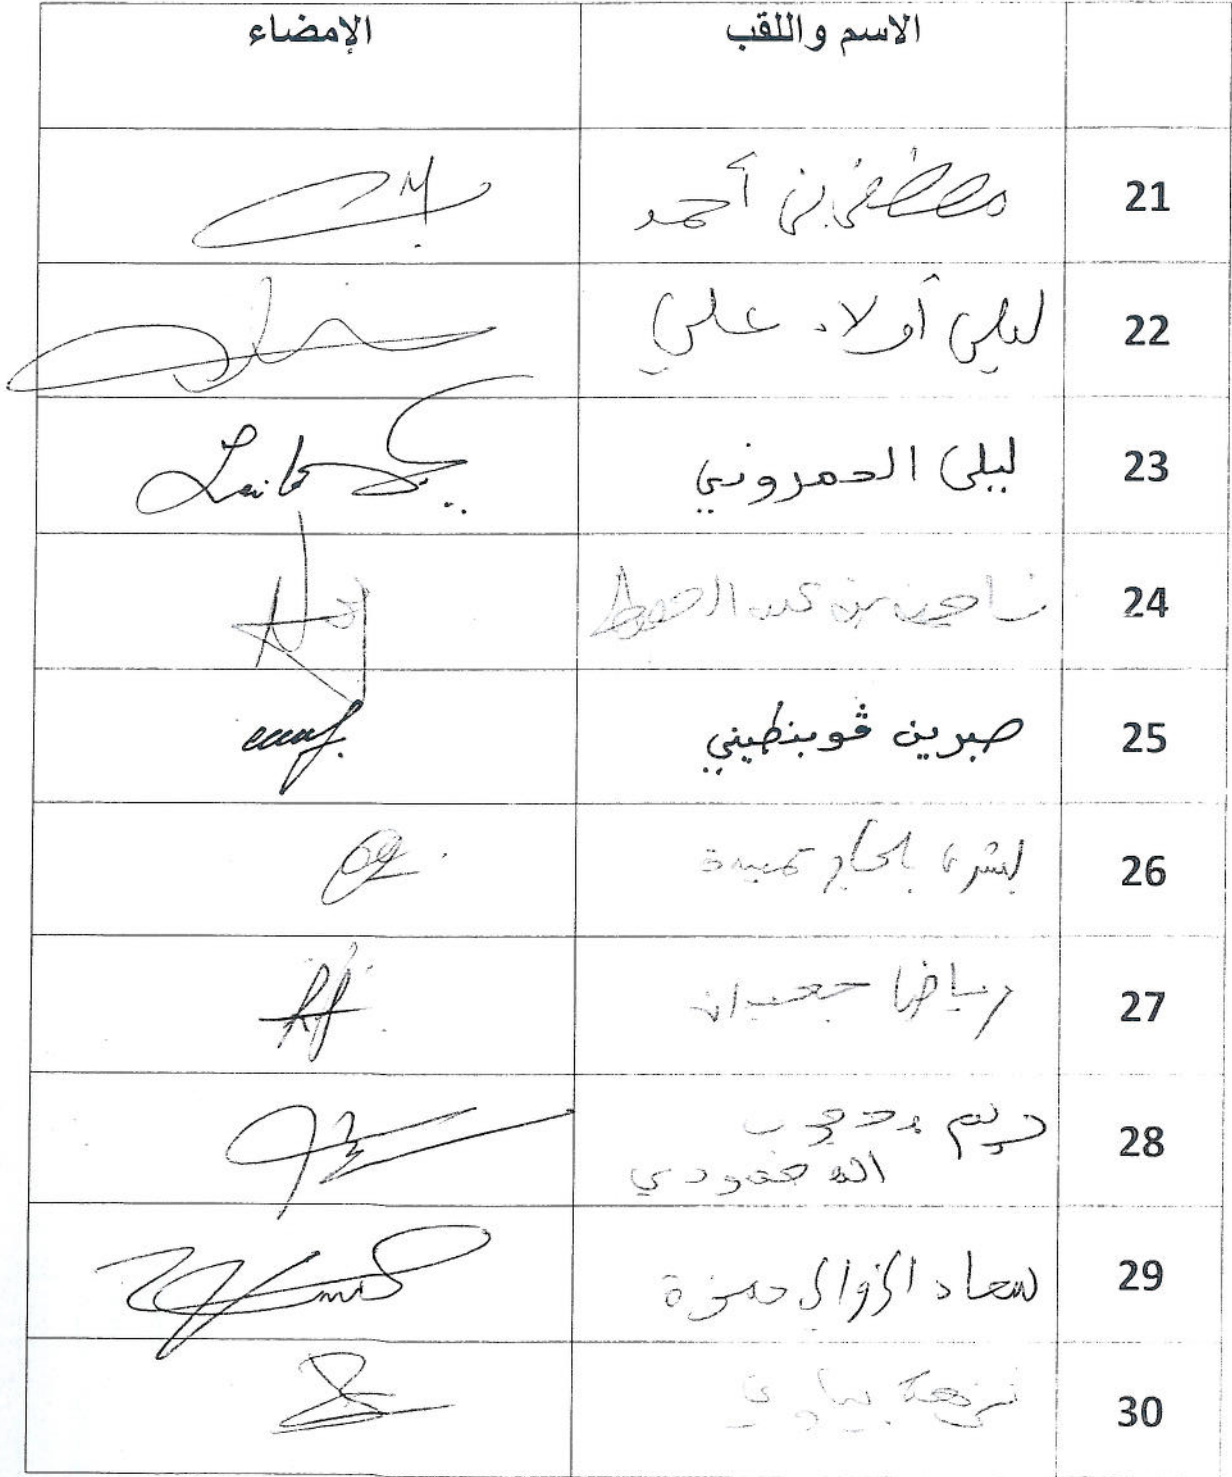 الاسم واللقب الإمضاء
21 مصطفى بن أحمد
22 ليلى أولاد علي
23 ليلى الحمروني Leila
24 بن عبد الحفيظ
25 صبرين ڤوبنطيني
26 بشرى بلحاج حميدة
27 رياض جعيدان
28 ريم محجوب
29 سعاد الزوالي حمزة
30 نزهة بياوي